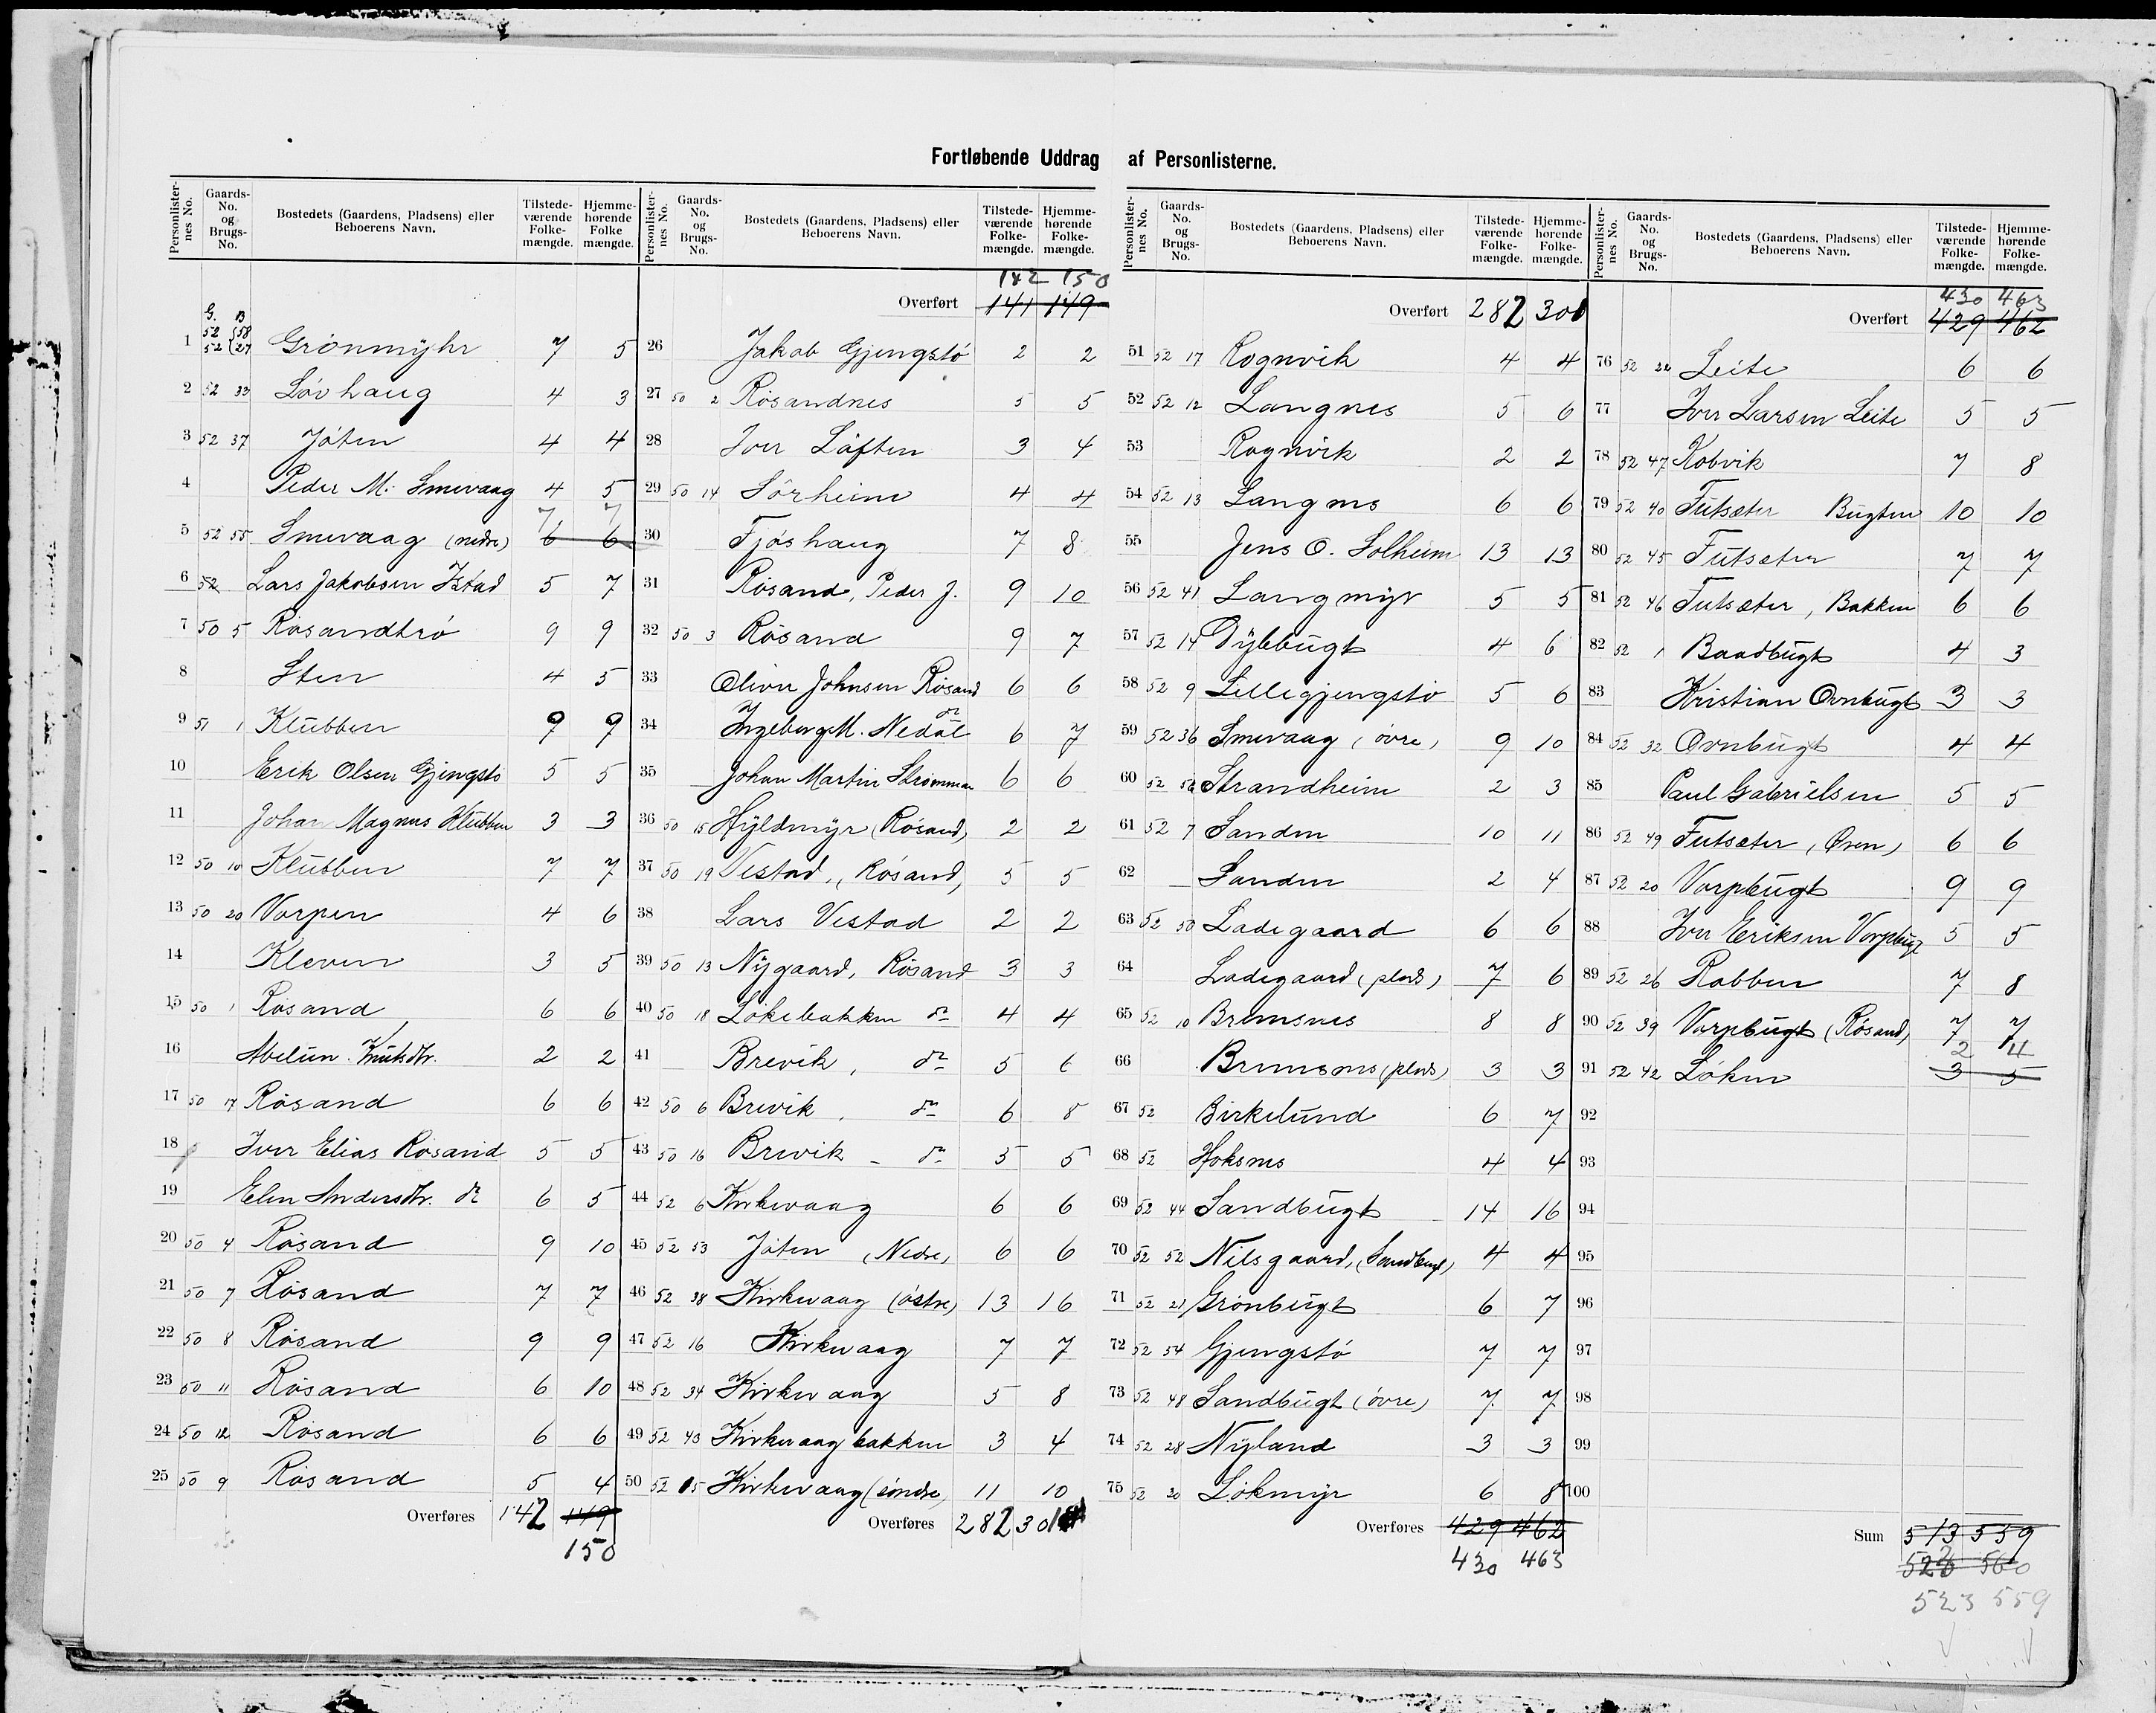 Fortløbende Uddrag af Personlisterne.
Personlisternes No. Gaards-No. og Brugs-No. Bostedets (Gaardens, Pladsens) eller Beboerens Navn. Tilstedeværende Folkemængde. Hjemmehørende Folke mængde.
G. B
1 52 {58 Grönmÿhr 7 5
52 {27
2 52 33 Lövhaug 4 3
3 52 37 Jöten 4 4
4 Peder M. Smevaag 4 5
7 7
5 52 55 Smevaag (nedre) 6 6
6 52 Lars Jakobsen Istad 5 7
7 50 5 Rösandtrö 9 9
8 Sten 4 5
9 51 1 Klubben 9 9
10 Erik Olsen Gjengstö 5 5
11 Johan Magnus Klubben 3 3
12 50 10 Klubben 7 7
13 50 20 Vorpen 4 6
14 Kleven 3 5
15 50 1 Rösand 6 6
16 Abelün Knutsdtr. 2 2
17 50 17 Rösand 6 6
18 Iver Elias Rösand 5 5
19 Elen Andersdtr. do 6 5
20 50 4 Rösand 9 10
21 50 7 Rösand 7 7
22 50 8 Rösand 9 9
23 50 11 Rösand 6 10
24 50 12 Rösand 6 6
25 50 9 Rösand 5 4
Overføres 142 149
150
Personlisternes No. Gaards-No. og Brugs-No. Bostedets (Gaardens, Pladsens) eller Beboerens Navn. Tilstedeværende Folkemængde. Hjemmehørende Folkemængde.
142 150
Overført 141 149
26 Jakob Gjengstö 2 2
27 50 2 Rösandnes 5 5
28 Iver Löften 3 4
29 50 14 Sörheim 4 4
30 Fjöshaug 7 8
31 Rösand, Peder J. 9 10
32 50 3 Rösand 9 7
33 Oliver Johnsen Rösand 6 6
34 Ingeborg M. Nedal do 6 7
35 Johan Martin Strömmen 6 6
36 50 15 Hÿldmÿr (Rösand) 2 2
37 50 19 Vestad, (Rösand) 5 5
38 Lars Vestad 2 2
39 50 13 Nÿgaard, Rösand 3 3
40 50 18 Lökebakken do 4 4
41 Brevik, do 5 6
42 50 6 Brevik, do 6 8
43 50 16 Brevik - do 5 5
44 52 6 Kirkevaag 6 6
45 52 53 Jöten (Nedre) 6 6
46 52 38 Kirkevaag (östre) 13 16
47 52 16 Kirkevaag 7 7
48 52 34 Kirkevaag 5 8
49 52 43 Kirkevaag bakken 3 4
50 52 15 Kirkevaag (söndre) 11 10
Overføres 282 301
Personlisternes No. Gaards-No. og Brugs-No. Bostedets (Gaardens, Pladsens) eller Beboerens Navn. Tilstedeværende Folkemængde. Hjemmehørende Folkemængde.
Overført 282 301
51 52 17 Rognvik 4 4
52 52 12 Langnes 5 6
53 Rognvik 2 2
54 52 13 Langnes 6 6
55 Jens O. Solheim 13 13
56 52 41 Langmÿr 5 5
57 52 14 Dÿbbugt 4 6
58 52 9 Lillegjengstö 5 6
59 52 36 Smevaag (övre) 9 10
60 52 56 Strandheim 2 3
61 52 7 Sanden 10 11
62 Sanden 2 4
63 52 50 Ladegaard 6 6
64 Ladegaard (plads) 7 6
65 52 10 Bremsnes 8 8
66 Bremsnes (plads) 3 3
67 52 Birkelund 6 7
68 52 Hoksnes 4 4
69 52 44 Sandbugt 14 16
70 52 52 Nilsgaard, (Sandbugt) 4 4
71 52 21 Grönbugt 6 7
72 52 54 Gjengstö 7 7
73 52 48 Sandbugt (övre) 7 7
74 52 28 Nÿland 3 3
75 52 30 Lökmÿr 6 8
Overføres 429 462
430 463
Personlisternes No. Gaards-No. og Brugs-No. Bostedets (Gaardens, Pladsens) eller Beboerens Navn. Tilstedeværende Folkemængde. Hjemmehørende Folkemængde.
430 463
Overført 429 462
76 52 22 Leite 6 6
77 Iver Larsen Leite 5 5
78 52 47 Kobvik 7 8
79 52 40 Futsæter Bugten 10 10
80 52 45 Futsæter 7 7
81 52 46 Futsæter, Bakken 6 6
82 52 1 Baadbugt 4 3
83 Kristian Ornbugt 3 3
84 52 32 Ornbugt 4 4
85 Paul Gabrielsen 5 5
86 52 49 Futsæter (Øren) 6 6
87 52 20 Vorpbugt 9 9
88 Iver Eriksen Vorpbugt 5 5
89 52 26 Rabben 7 8
90 52 39 Vorpbugt (Rösand) 7 7
2 4
91 52 42 Löken 3 5
92
93
94
95
96
97
98
99
100
Sum 513 559
523 560
523 559